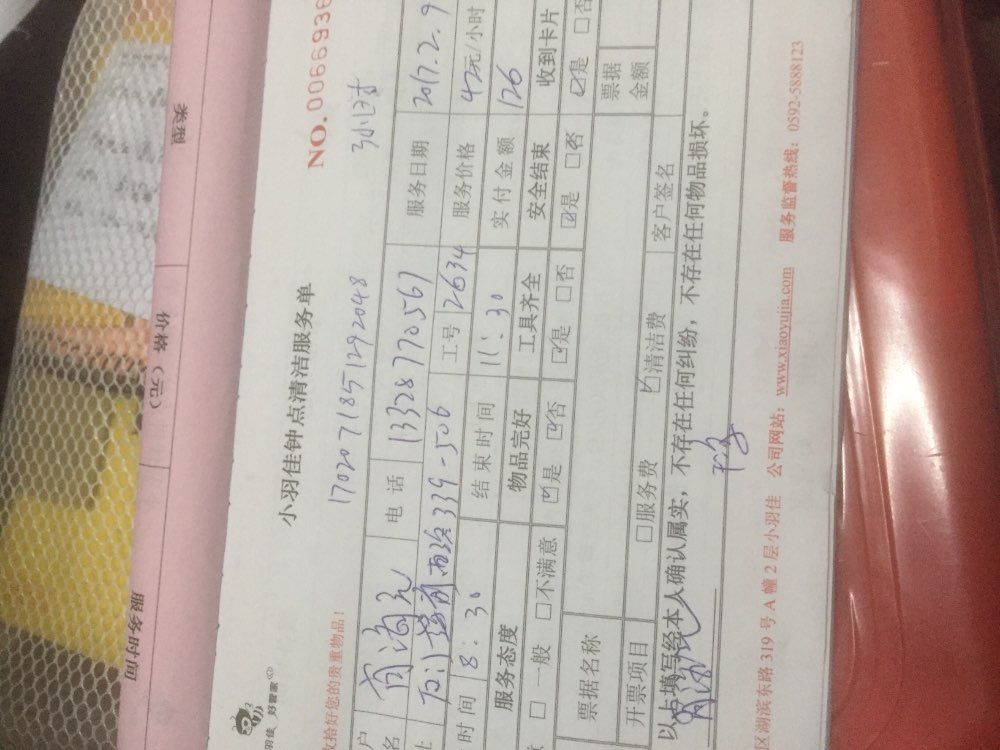 服务时间 价格（元） 类型
羽佳 好管家
小羽佳钟点清洁服务单
收拾好您的贵重物品！
NO. 0066936
17020718512922048
户名 电话 13328770561 服务日期 2017.2.9
339-506 工号 2634 服务价格 42元/小时
时间 8:30 结束时间 11:30 实付金额 126
服务态度 物品完好 工具齐全 安全结束 收到卡片
□一般 □不满意 ☑是 ☑否 ☑是 □否 ☑是 □否 ☑是 □否
票据名称 票据金额
开票项目 □服务费 ☑清洁费 客户签名
以上填写经本人确认属实，不存在任何纠纷，不存在任何物品损坏。
区湖滨东路 319 号 A 幢 2 层小羽佳 公司网站：www.xiaoyujia.com 服务监督热线：0592-5888123